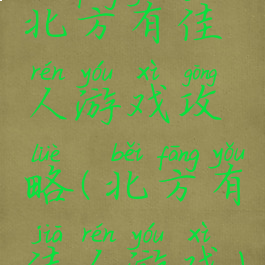 北方有佳
rén yóu xì gōng
人游戏攻
lüè běi fāng yǒu
略(北方有
jiā rén yóu xì
佳人游戏)